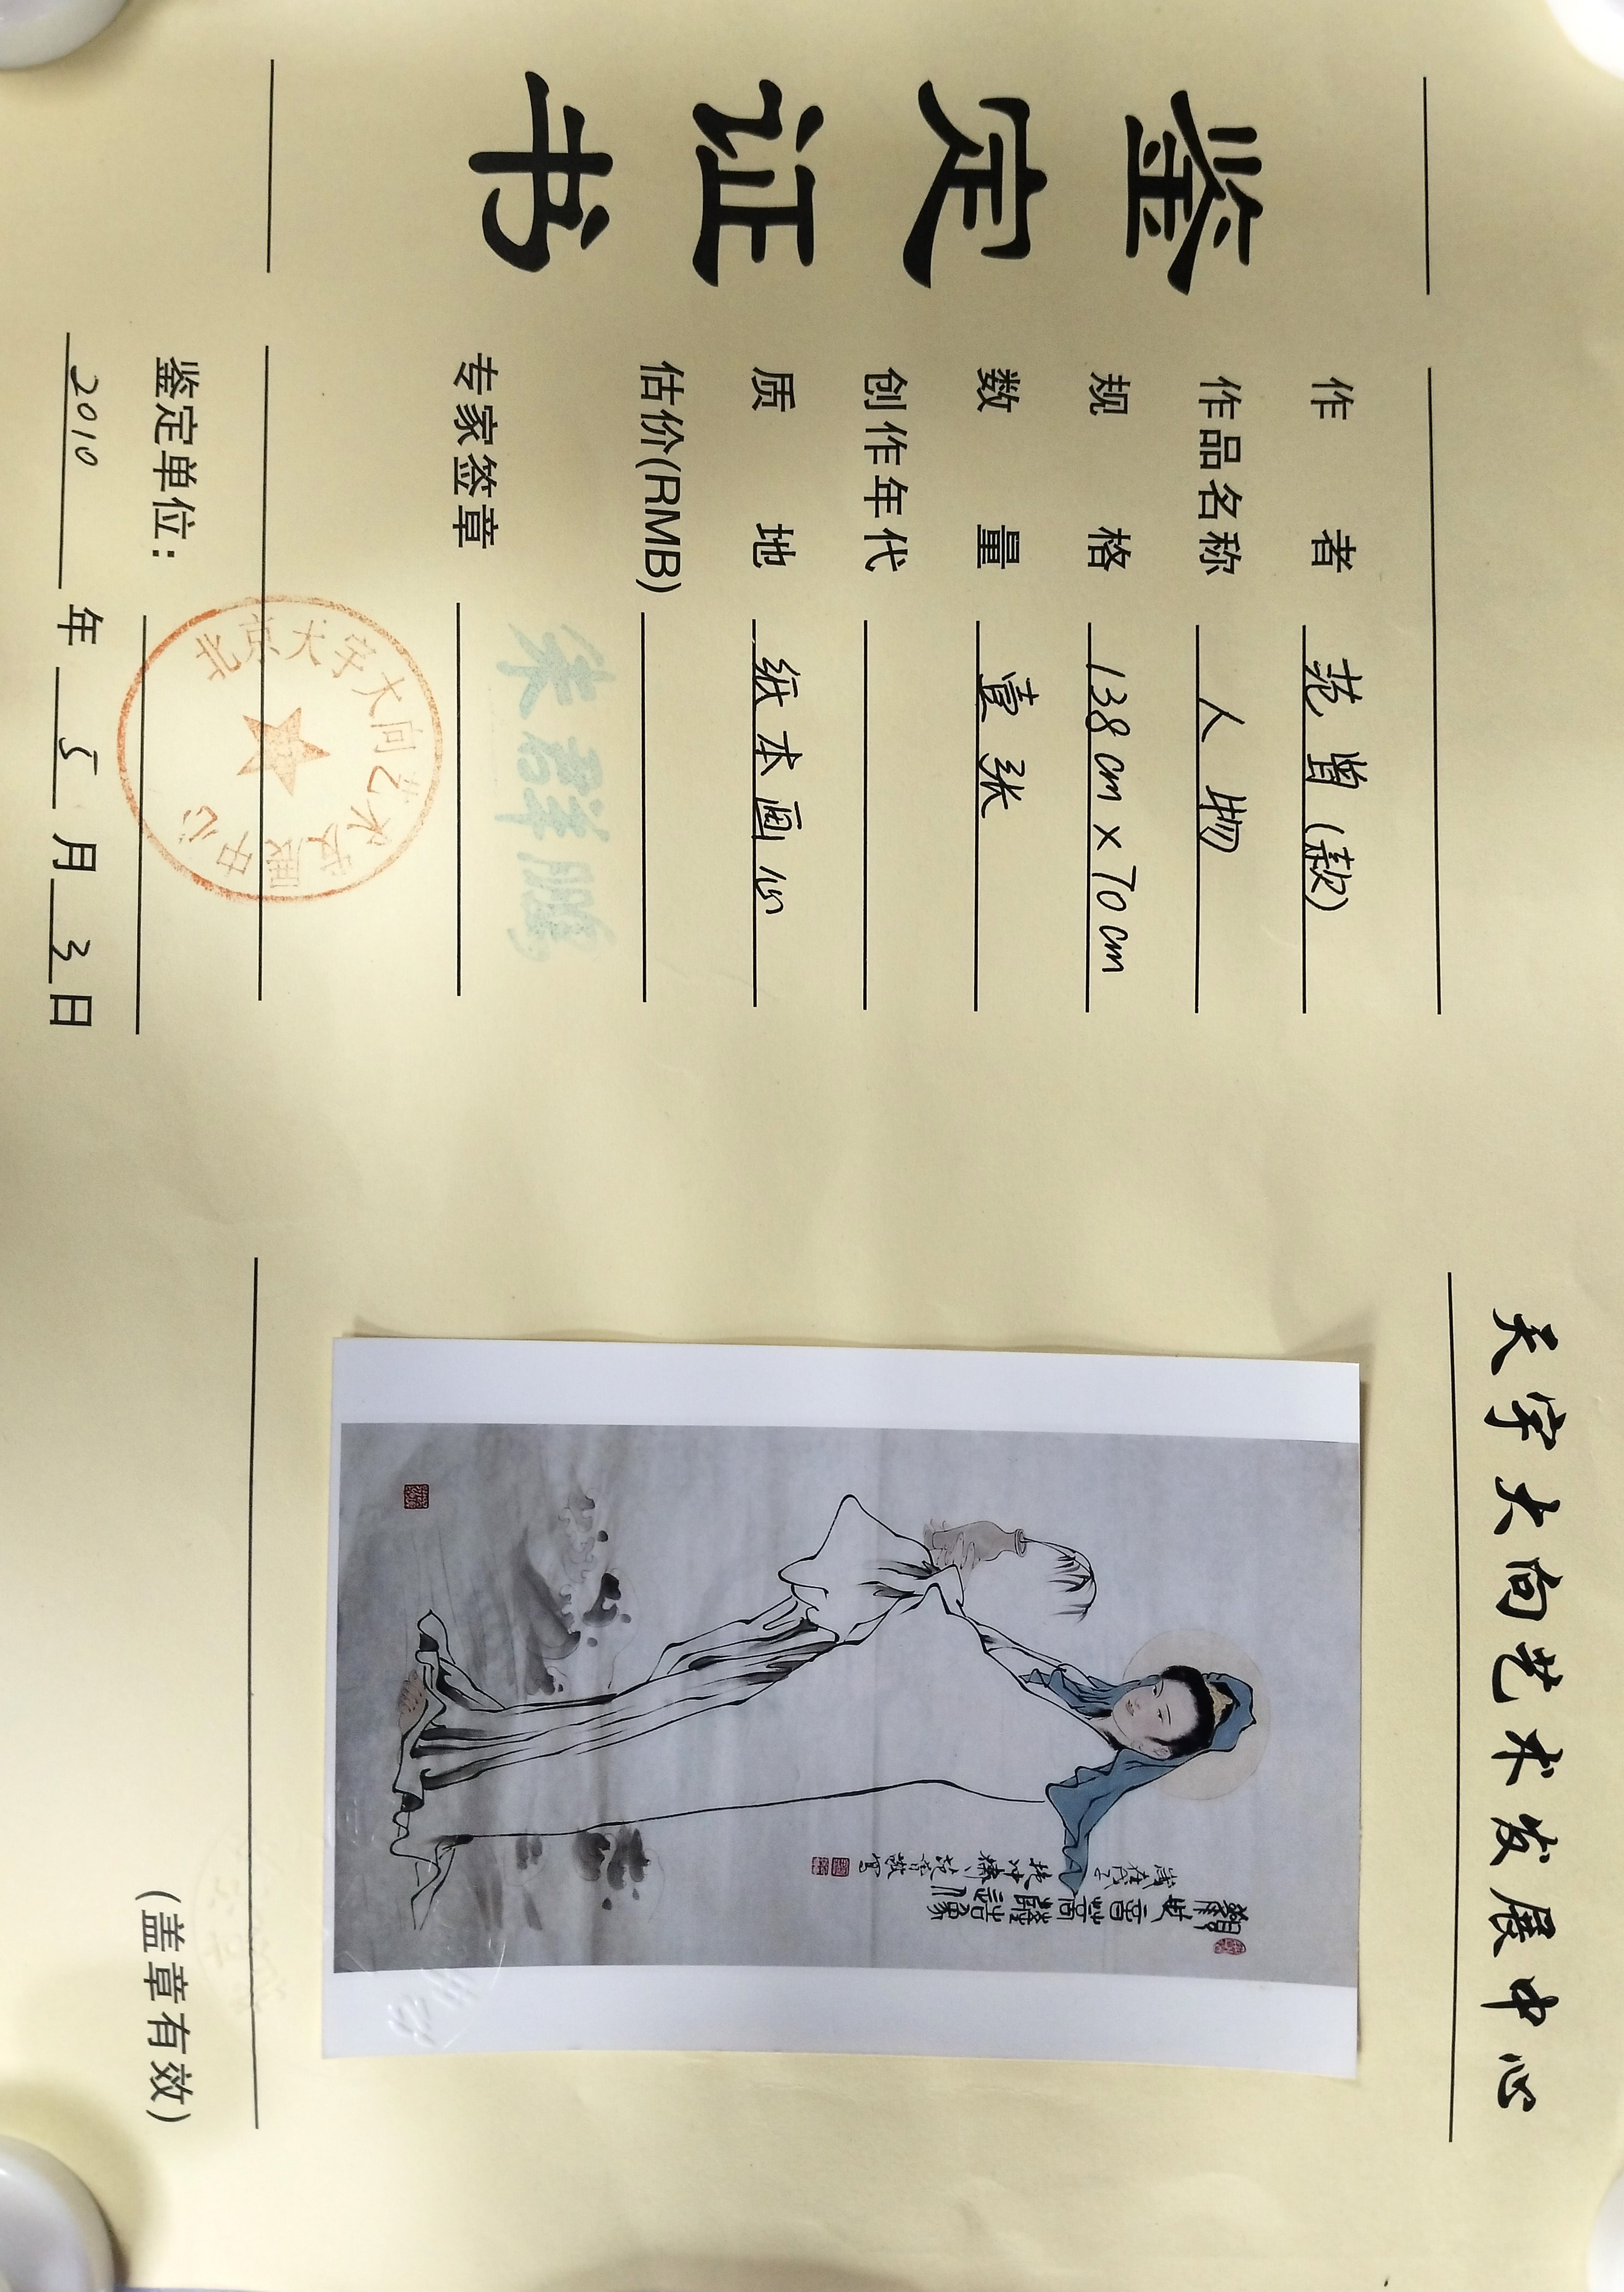 鉴定证书
作者 范曾(款)
作品名称 人物
规格 138cm×70cm
数量 壹张
创作年代
质地 纸本画心
估价(RMB)
专家签章
鉴定单位:
2010年5月3日
北京天宇大向艺术发展中心
天宇大向艺术发展中心
(盖章有效)